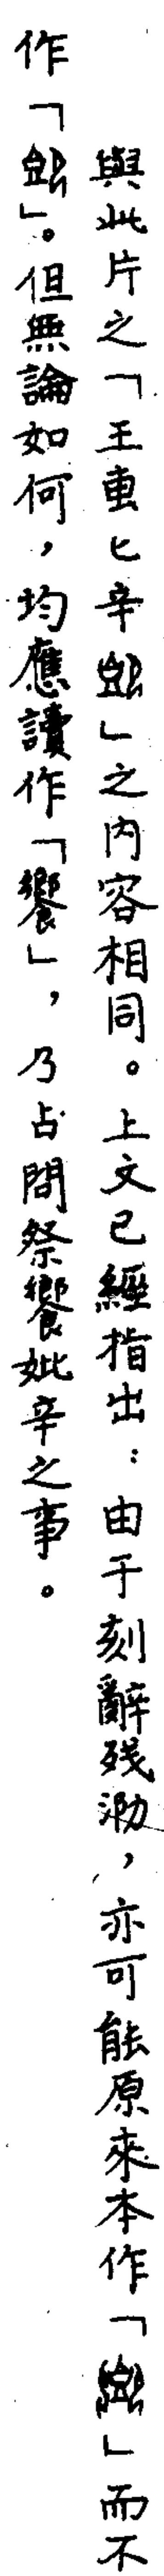 與此片之「王叀匕辛」之內容相同。上文已經指出：由于刻辭殘泐，亦可能原來本作「」而不
作「」。但無論如何，均應讀作「饗」，乃占問祭饗妣辛之事。